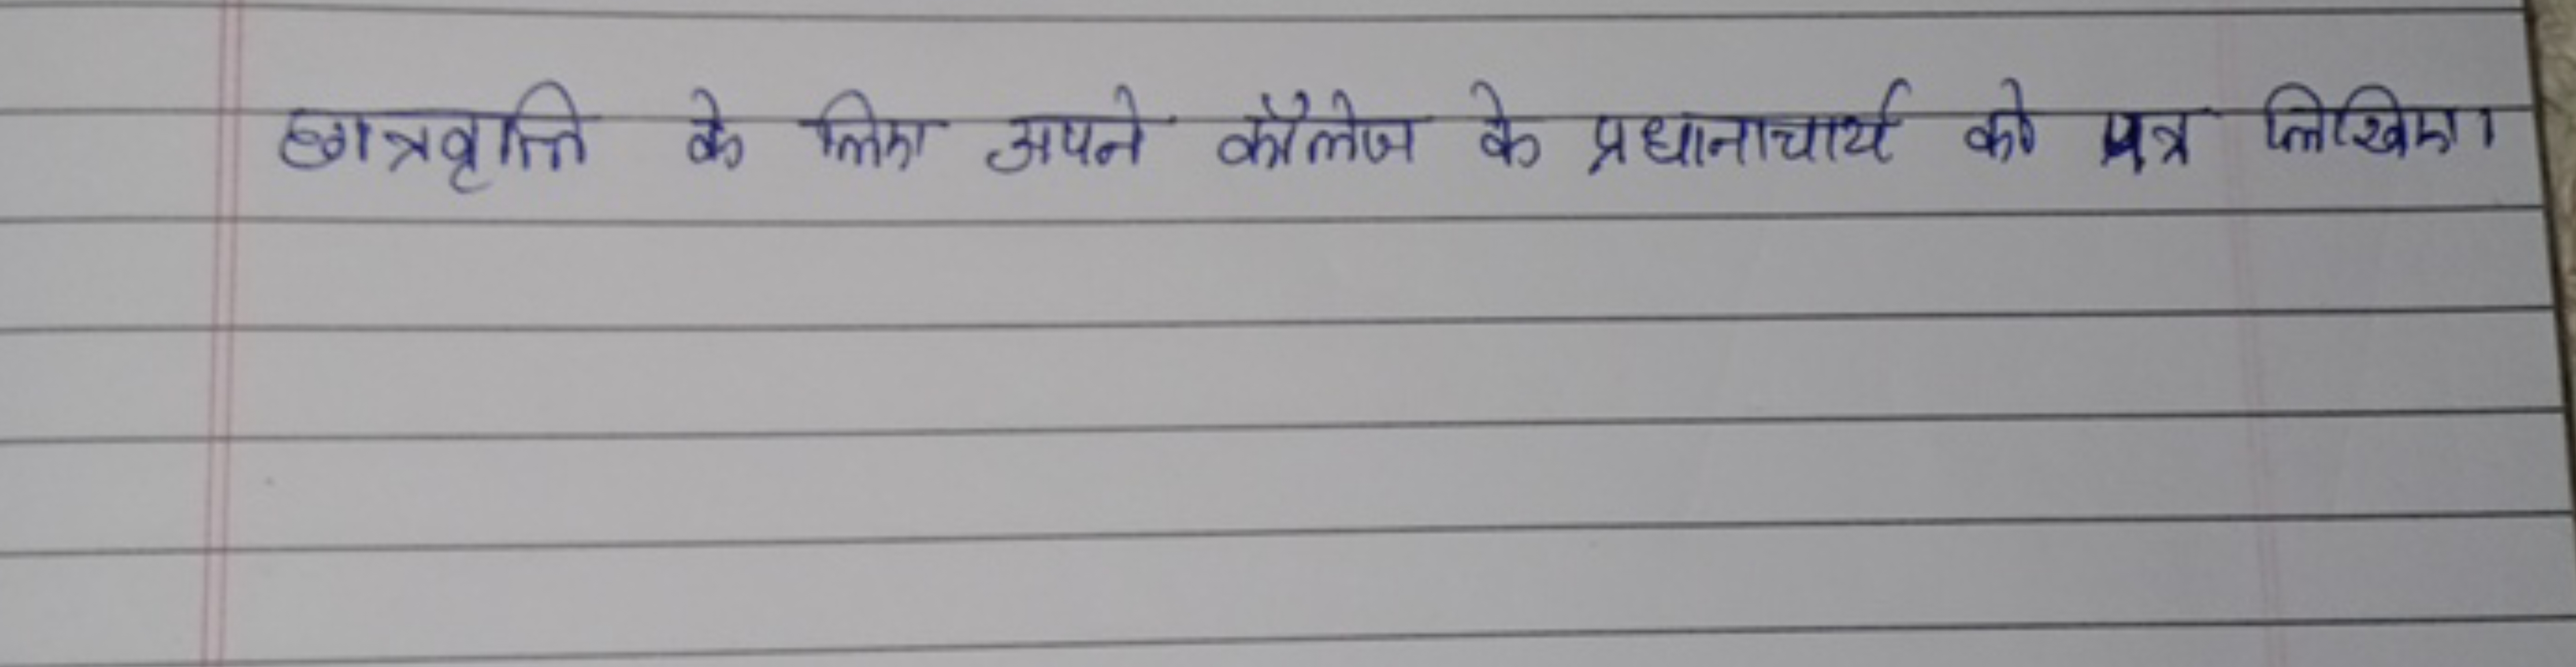 छात्रवृत्ति के लिए अपने कॉलेज के प्रधानाचार्य को पत्र लिखिए।